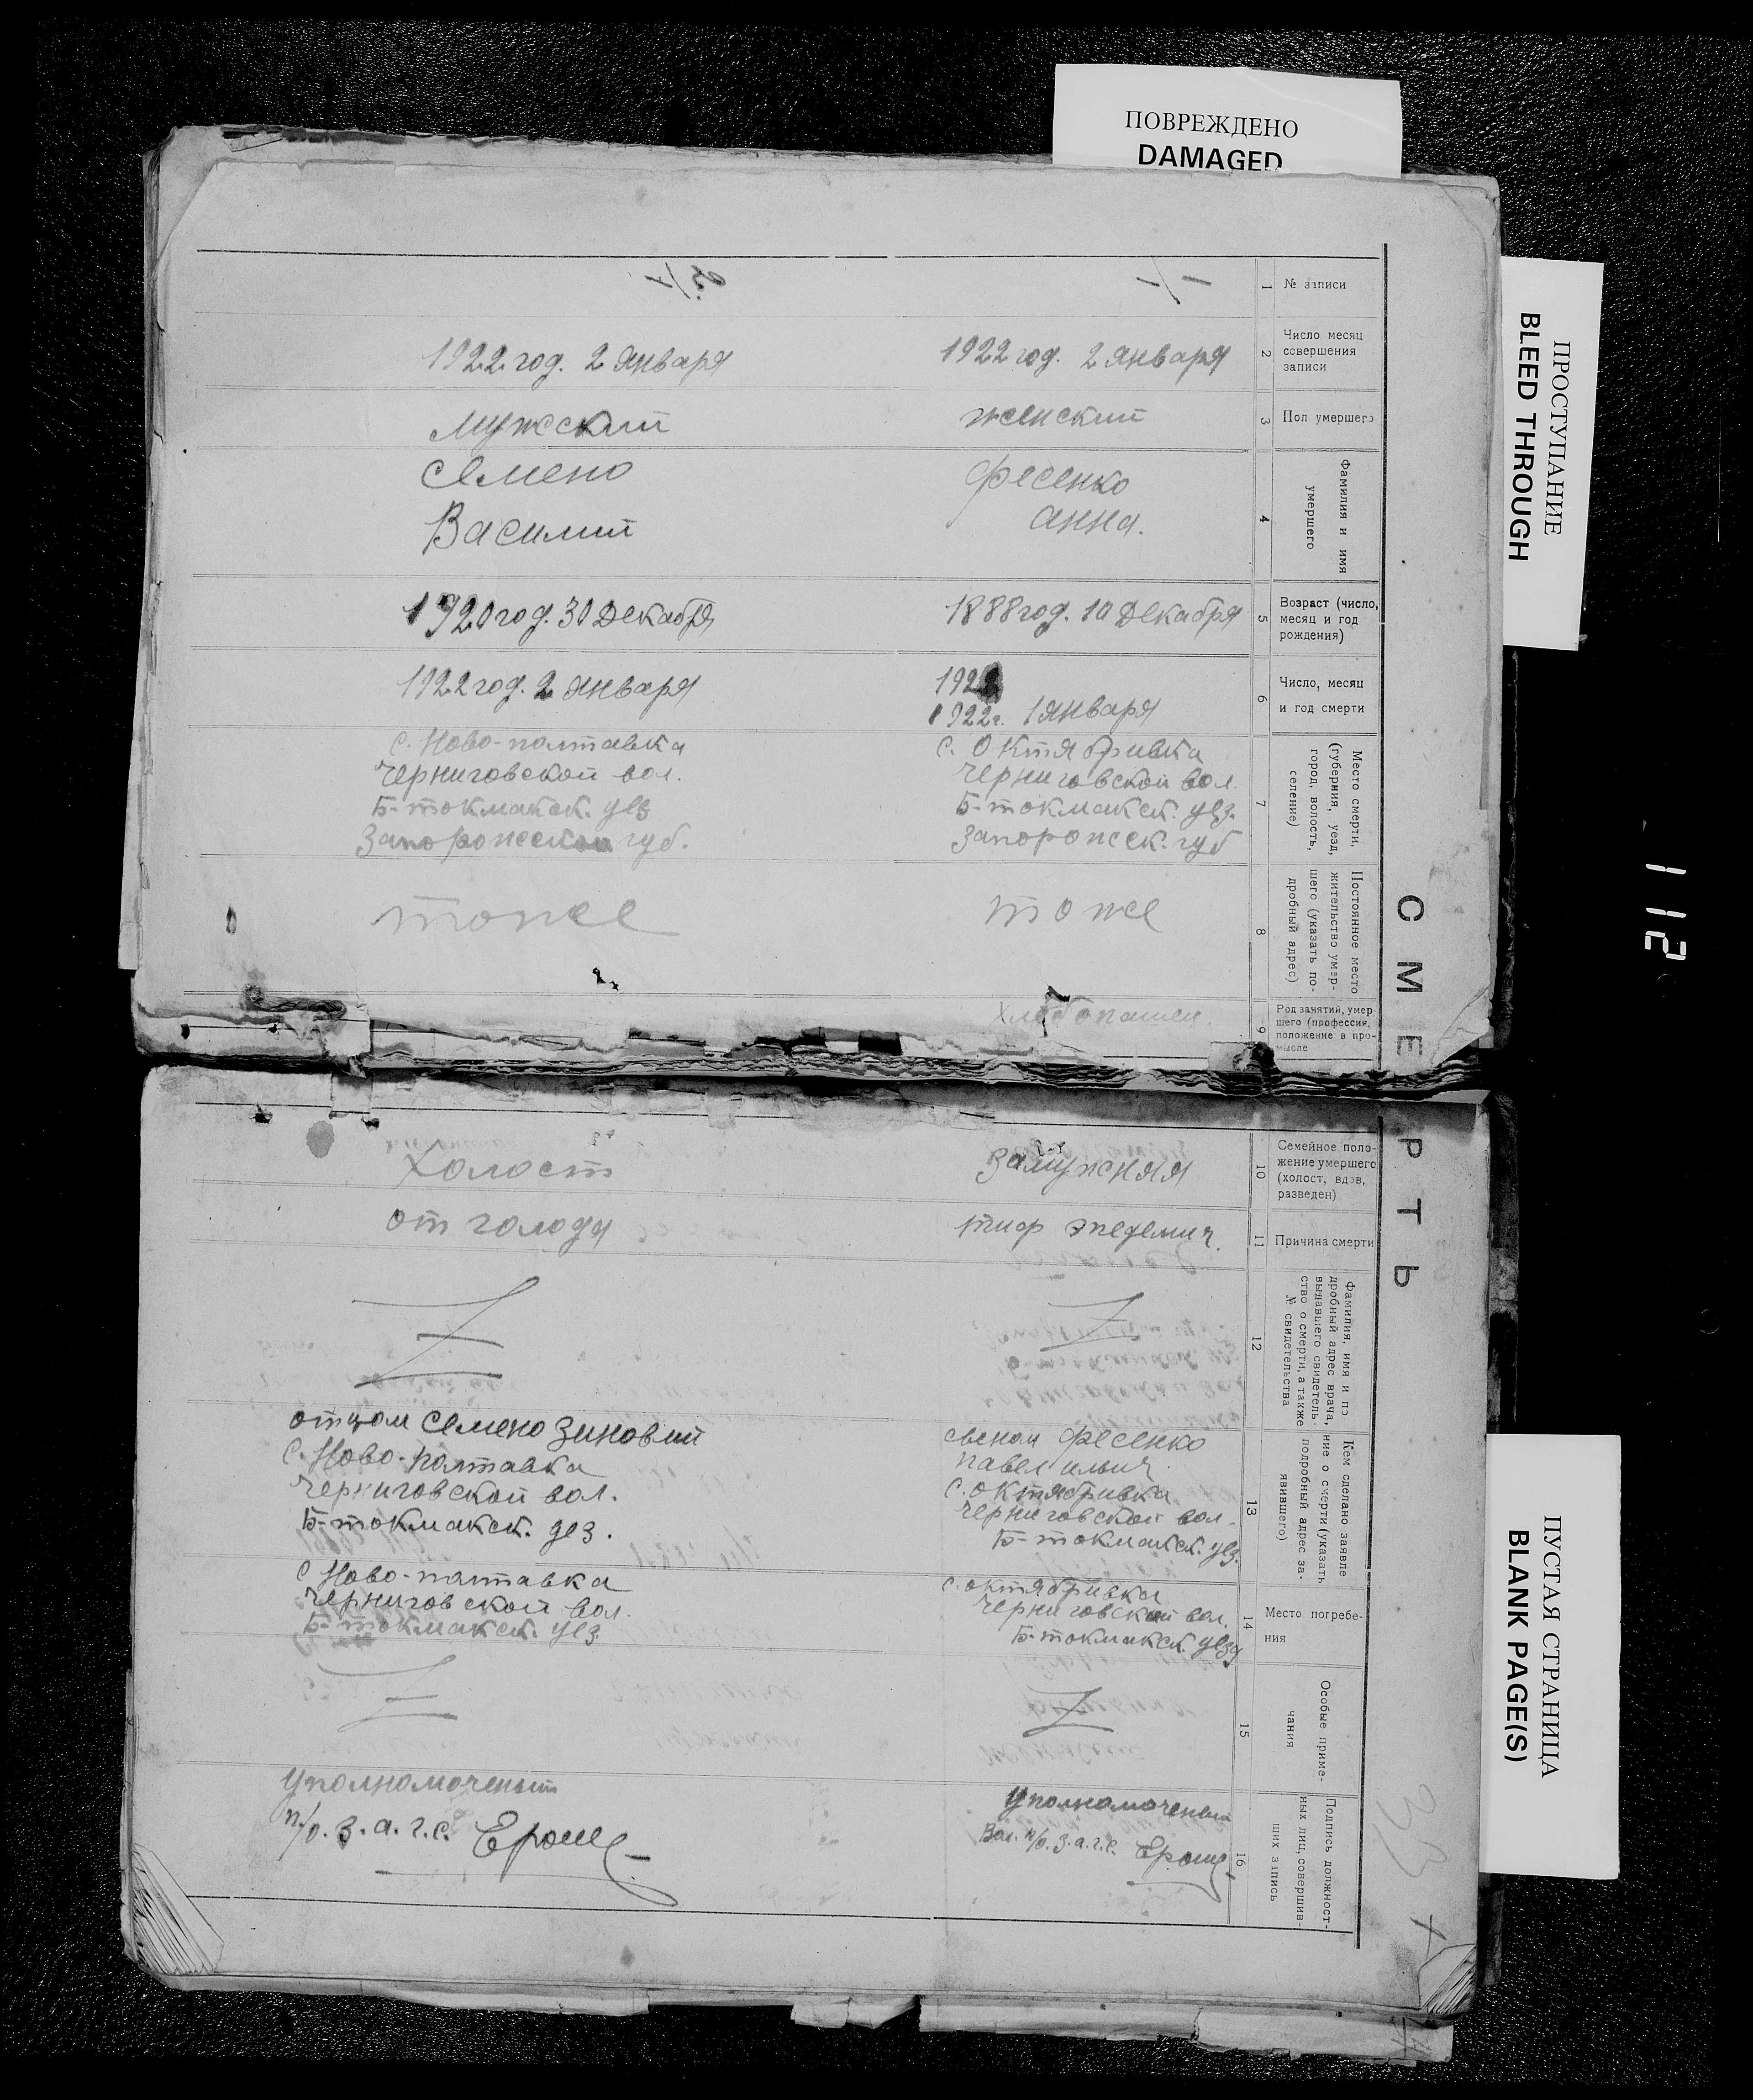 ПОВРЕЖДЕНО
DAMAGED
ПРОСТУПАНИЕ
BLEED THROUGH
ПУСТАЯ СТРАНИЦА
BLANK PAGE(S)
112
СМЕРТЬ
1
№ записи
2
Число месяц
совершения
записи
1922 год. 2 Января
1922 год. 2 Января
3
Пол умершего
Мужский
женский
4
Фамилия и имя
умершего
Семено
Василий
Фесенко
Анна.
5
Возраст (число,
месяц и год
рождения)
1920 год. 30 Декабря
1888 год. 10 Декабря
6
Число, месяц
и год смерти
1922 год. 2 Января
192
1922 г. 1 Января
7
Место смерти,
(губерния, уезд,
город, волость,
селение)
с. Ново-полтавка
Черниговской вол.
Б-токмакск. уез
Запорожской губ.
с. Октябривка
Черниговской вол.
Б-токмакск. уез.
Запорожск. губ
8
Постоянное место
жительство умер-
шего (указать по-
дробный адрес)
тоже
тоже
9
Род занятий, умер
шего (профессия,
положение в про-
мысле
10
Семейное поло-
жение умершего
(холост, вдов,
разведен)
Холост
Замужняя
11
Причина смерти
от голода
тиф эпедемич.
12
Фамилия, имя и по
дробный адрес врача,
выдавшего свидетель-
ство о смерти, а также
№ свидетельства
13
Кем сделано заявле
ние о смерти (указать
подробный адрес за-
явившего)
отцом Семено Зиновий
С. Ново-полтавка
Черниговской вол.
Б-токмакск. уез.
Фесенко
павел ильич
с. Октябривка
Черниговской вол.
Б-токмакск. уез.
14
Место погребе-
ния
с Ново-полтавка
Черниговской вол.
Б-токмакск. уез.
с. октябривка
Черниговской вол.
Б-токмакск. уезд
15
Особые приме-
чания
16
Подпись должност-
ных лиц, совершив-
ших запись
Уполномоченый
п/о. З.а.г.с.
Уполномоченый
Вол. п/о. З.а.г.с.
33